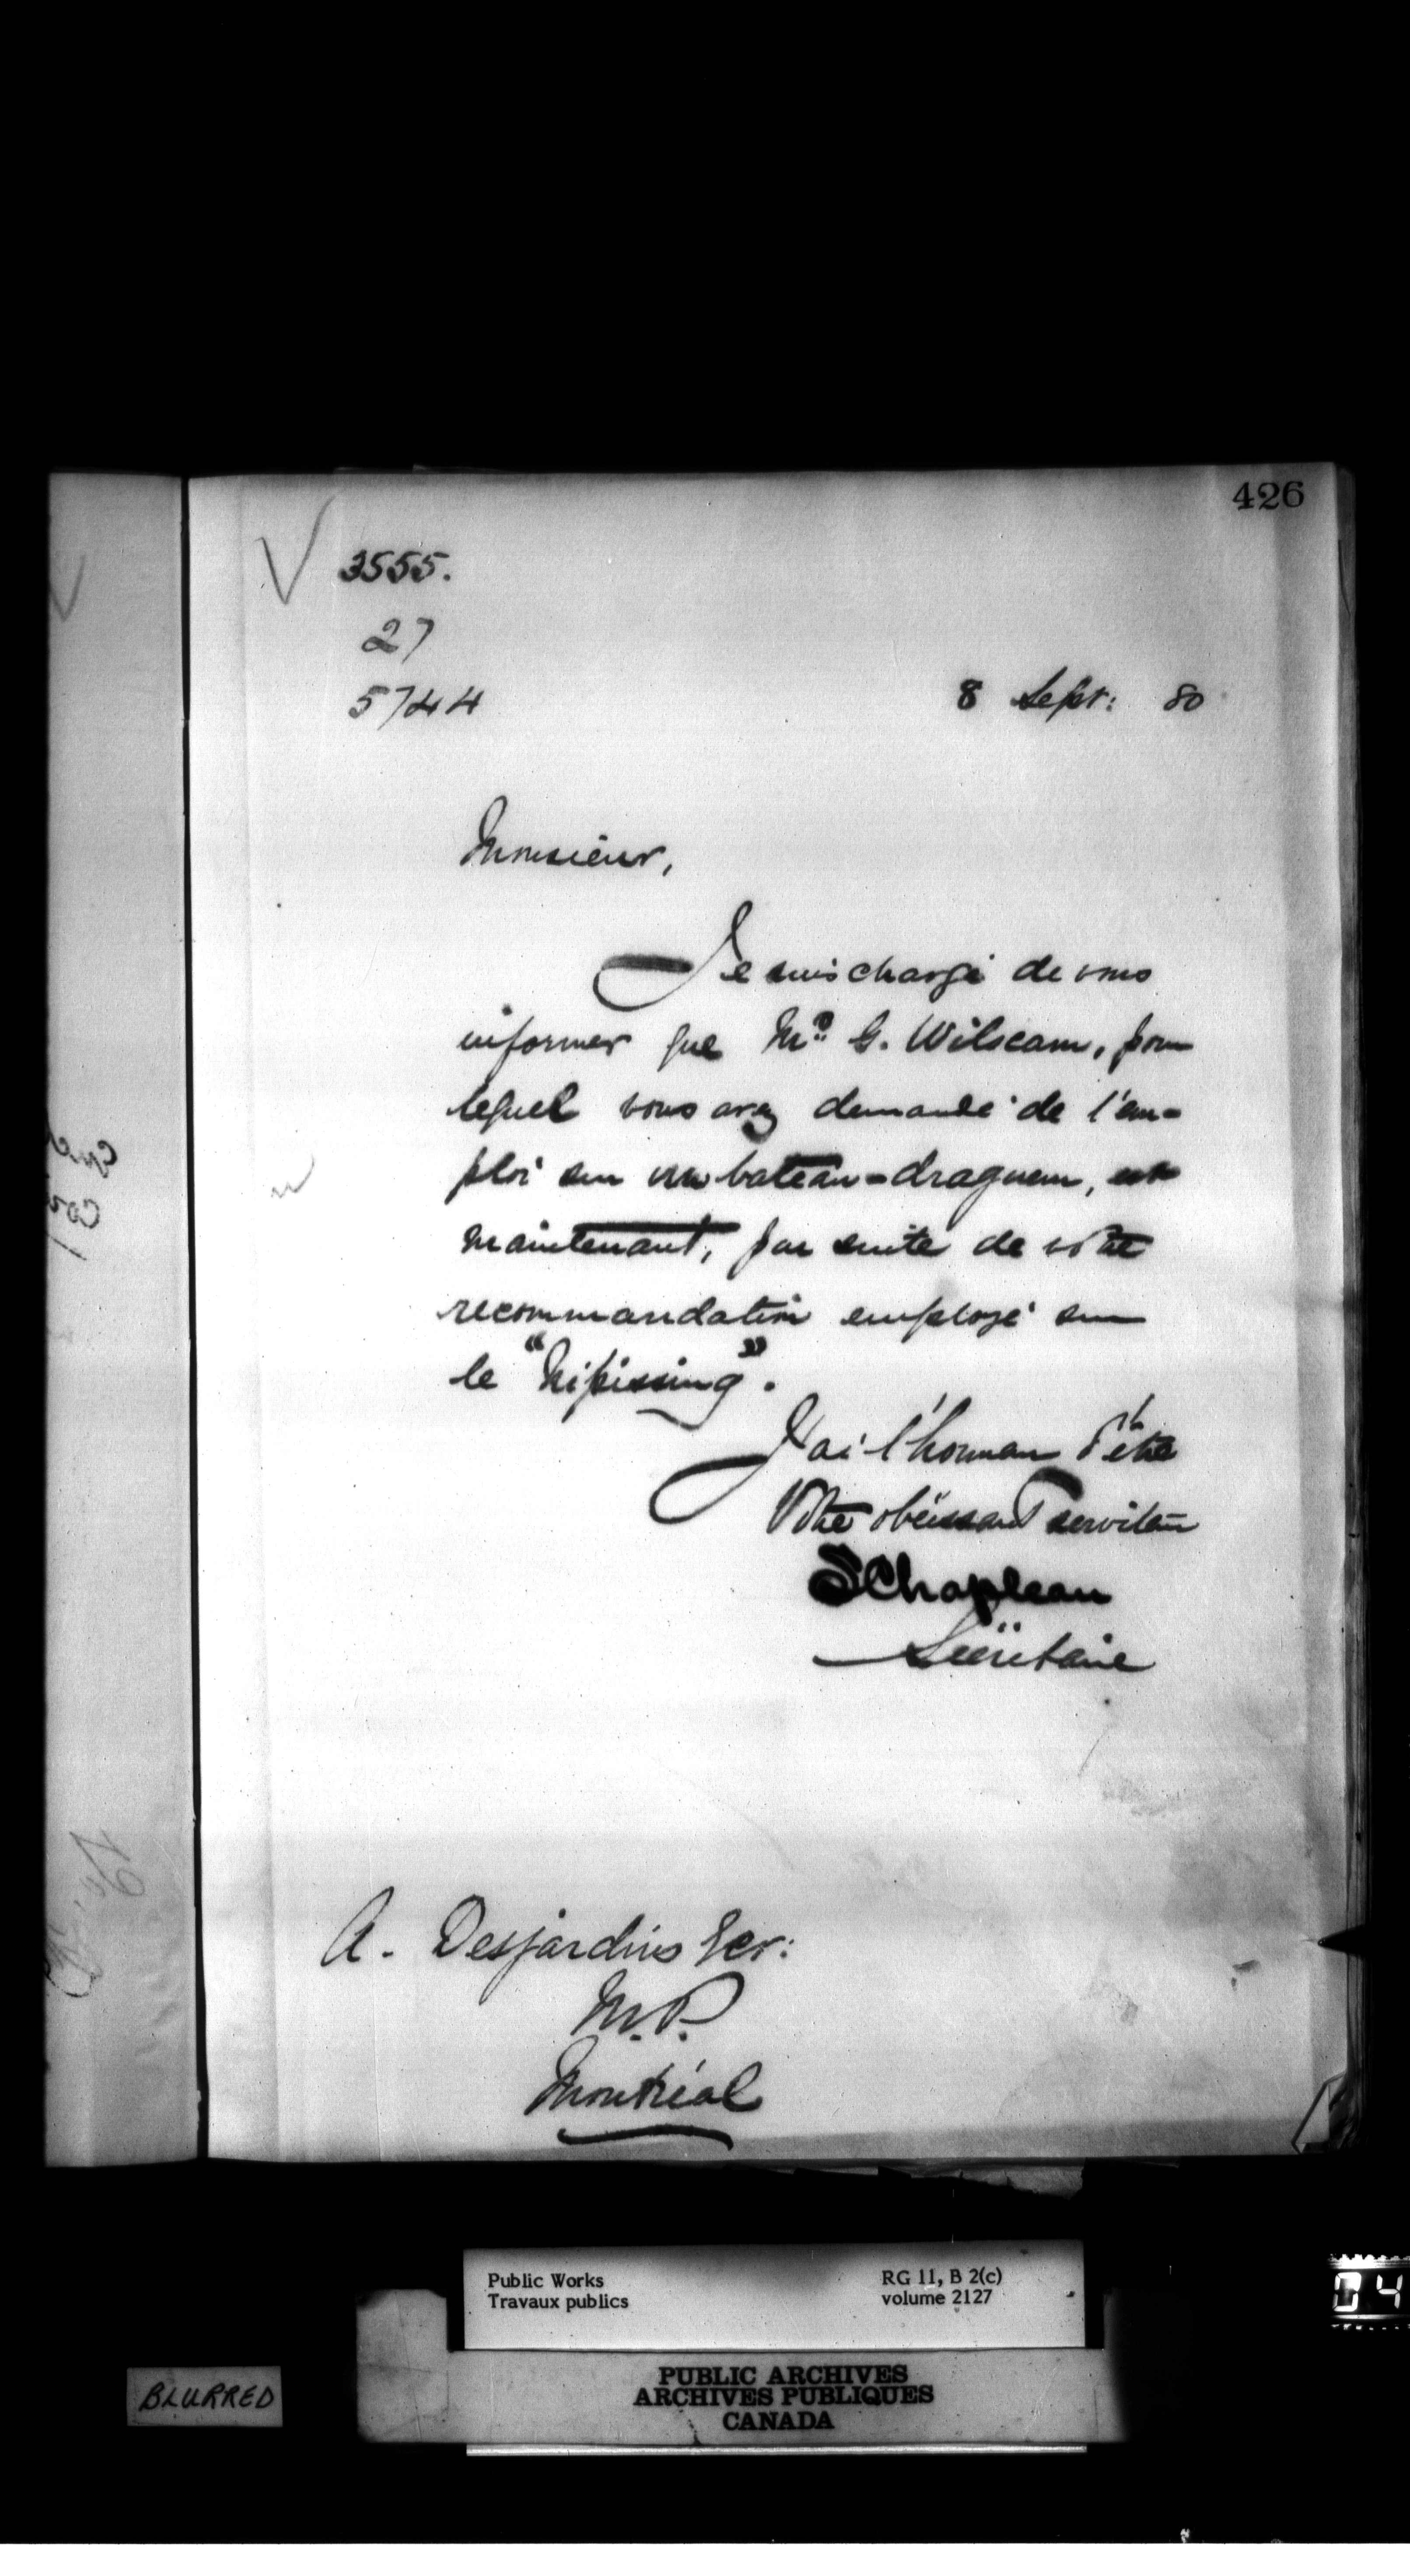 426
3555.
27
5744
8 Sept: 80
Monsieur,
Je suis chargé de vous
informer que Mr. G. Wilscam, pour
lequel vous avez demandé de l'em-
ploi sur un bateau-dragueur, est
maintenant, par suite de votre
recommandation employé sur
le "Nipissing".
J'ai l'honneur d'être
Votre obéissant serviteur
S Chapleau
Secrétaire
A. Desjardins Ecr:
M.P.
Montréal
Public Works
Travaux publics
RG 11, B 2(c)
volume 2127
PUBLIC ARCHIVES
ARCHIVES PUBLIQUES
CANADA
BLURRED
04